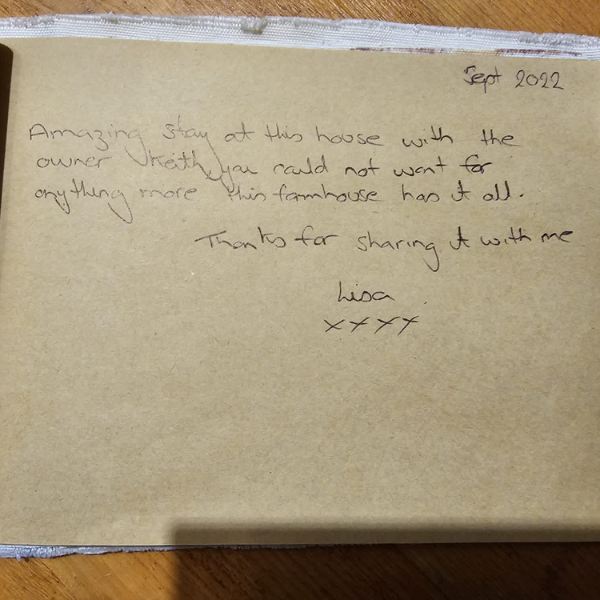 Sept 2022
Amazing stay at this house with the
owner Keith, you could not want for
anything more this farmhouse has it all.
Thanks for sharing it with me
Lisa
xxxx